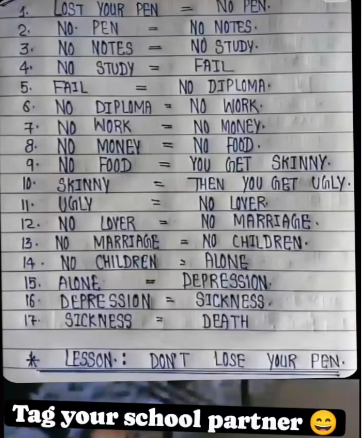 1. LOST YOUR PEN = NO PEN.
2. NO PEN = NO NOTES.
3. NO NOTES = NO STUDY.
4. NO STUDY = FAIL
5. FAIL = NO DIPLOMA.
6. NO DIPLOMA = NO WORK.
7. NO WORK = NO MONEY.
8. NO MONEY = NO FOOD.
9. NO FOOD = YOU GET SKINNY.
10. SKINNY = THEN YOU GET UGLY.
11. UGLY = NO LOVER
12. NO LOVER = NO MARRIAGE.
13. NO MARRIAGE = NO CHILDREN.
14. NO CHILDREN = ALONE
15. ALONE = DEPRESSION.
16. DEPRESSION = SICKNESS.
17. SICKNESS = DEATH
* LESSON.: DON'T LOSE YOUR PEN.
Tag your school partner 😄